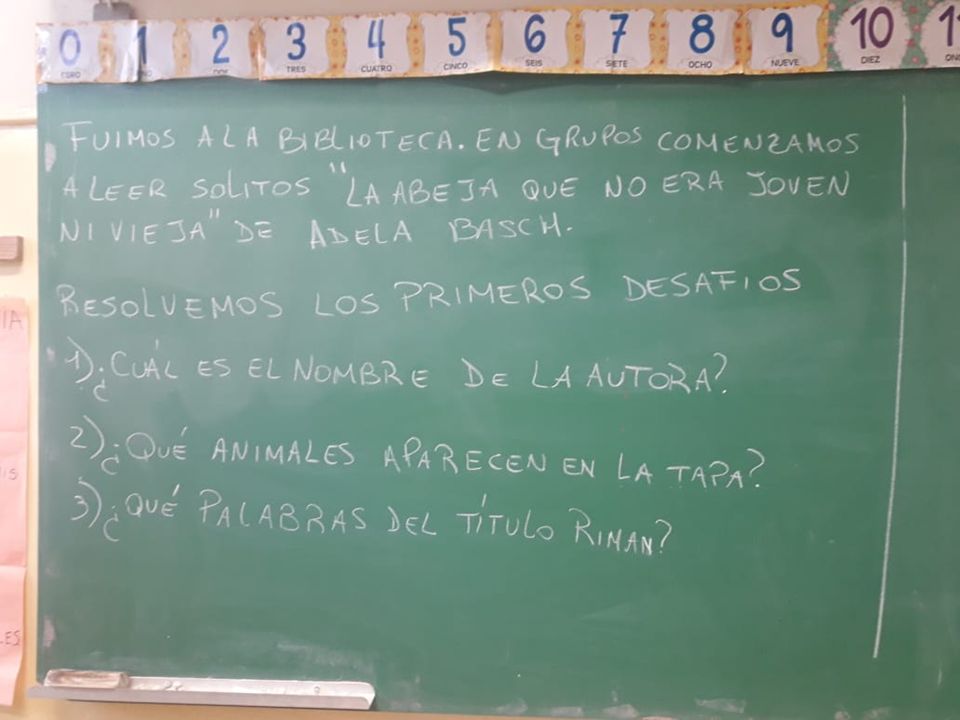 0 1 2 3 4 5 6 7 8 9 10 11
CERO DOS TRES CUATRO CINCO SEIS SIETE OCHO NUEVE DIEZ
FUIMOS A LA BIBLIOTECA. EN GRUPOS COMENZAMOS
A LEER SOLITOS "LA ABEJA QUE NO ERA JOVEN
NI VIEJA" DE ADELA BASCH.
RESOLVEMOS LOS PRIMEROS DESAFIOS
1) ¿CUÁL ES EL NOMBRE DE LA AUTORA?
2) ¿QUÉ ANIMALES APARECEN EN LA TAPA?
3) ¿QUÉ PALABRAS DEL TÍTULO RIMAN?